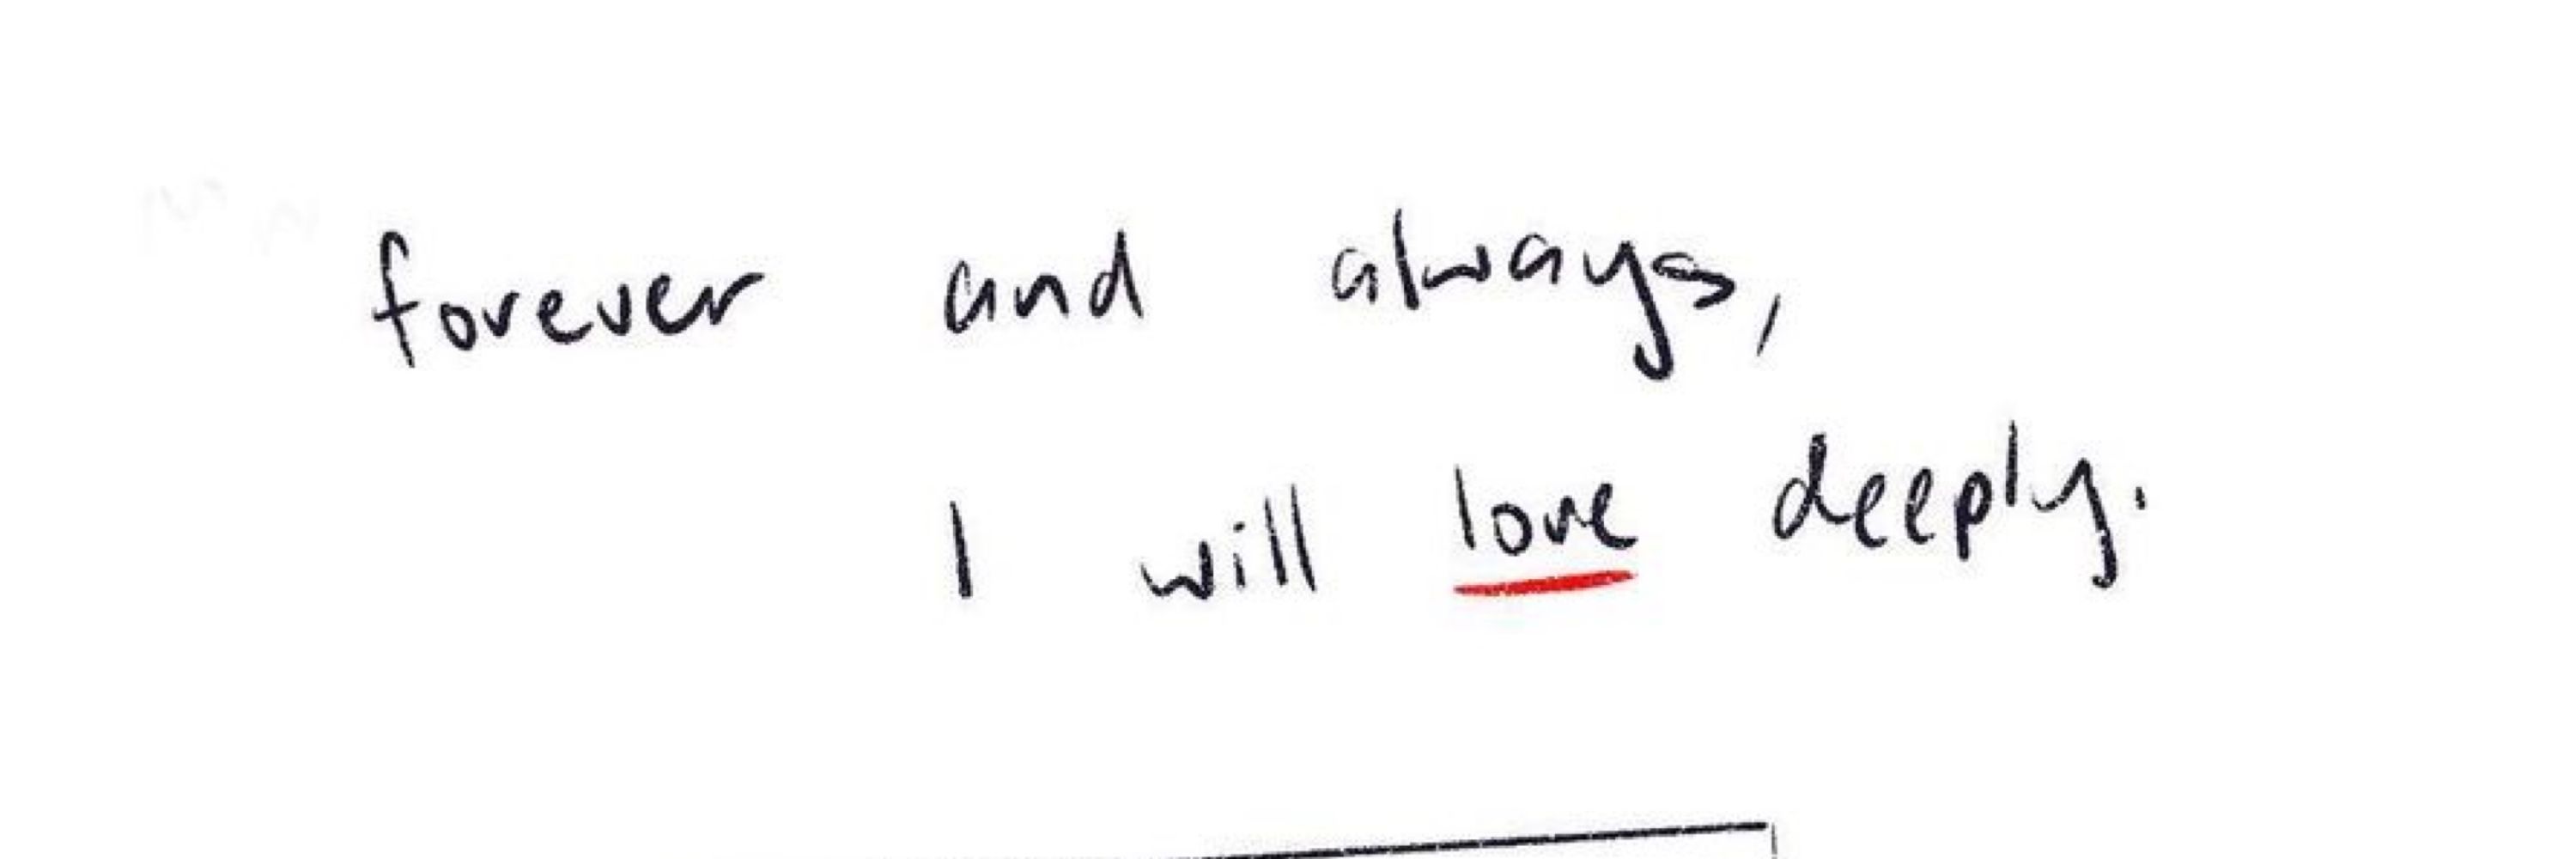 forever and always,
I will love deeply.